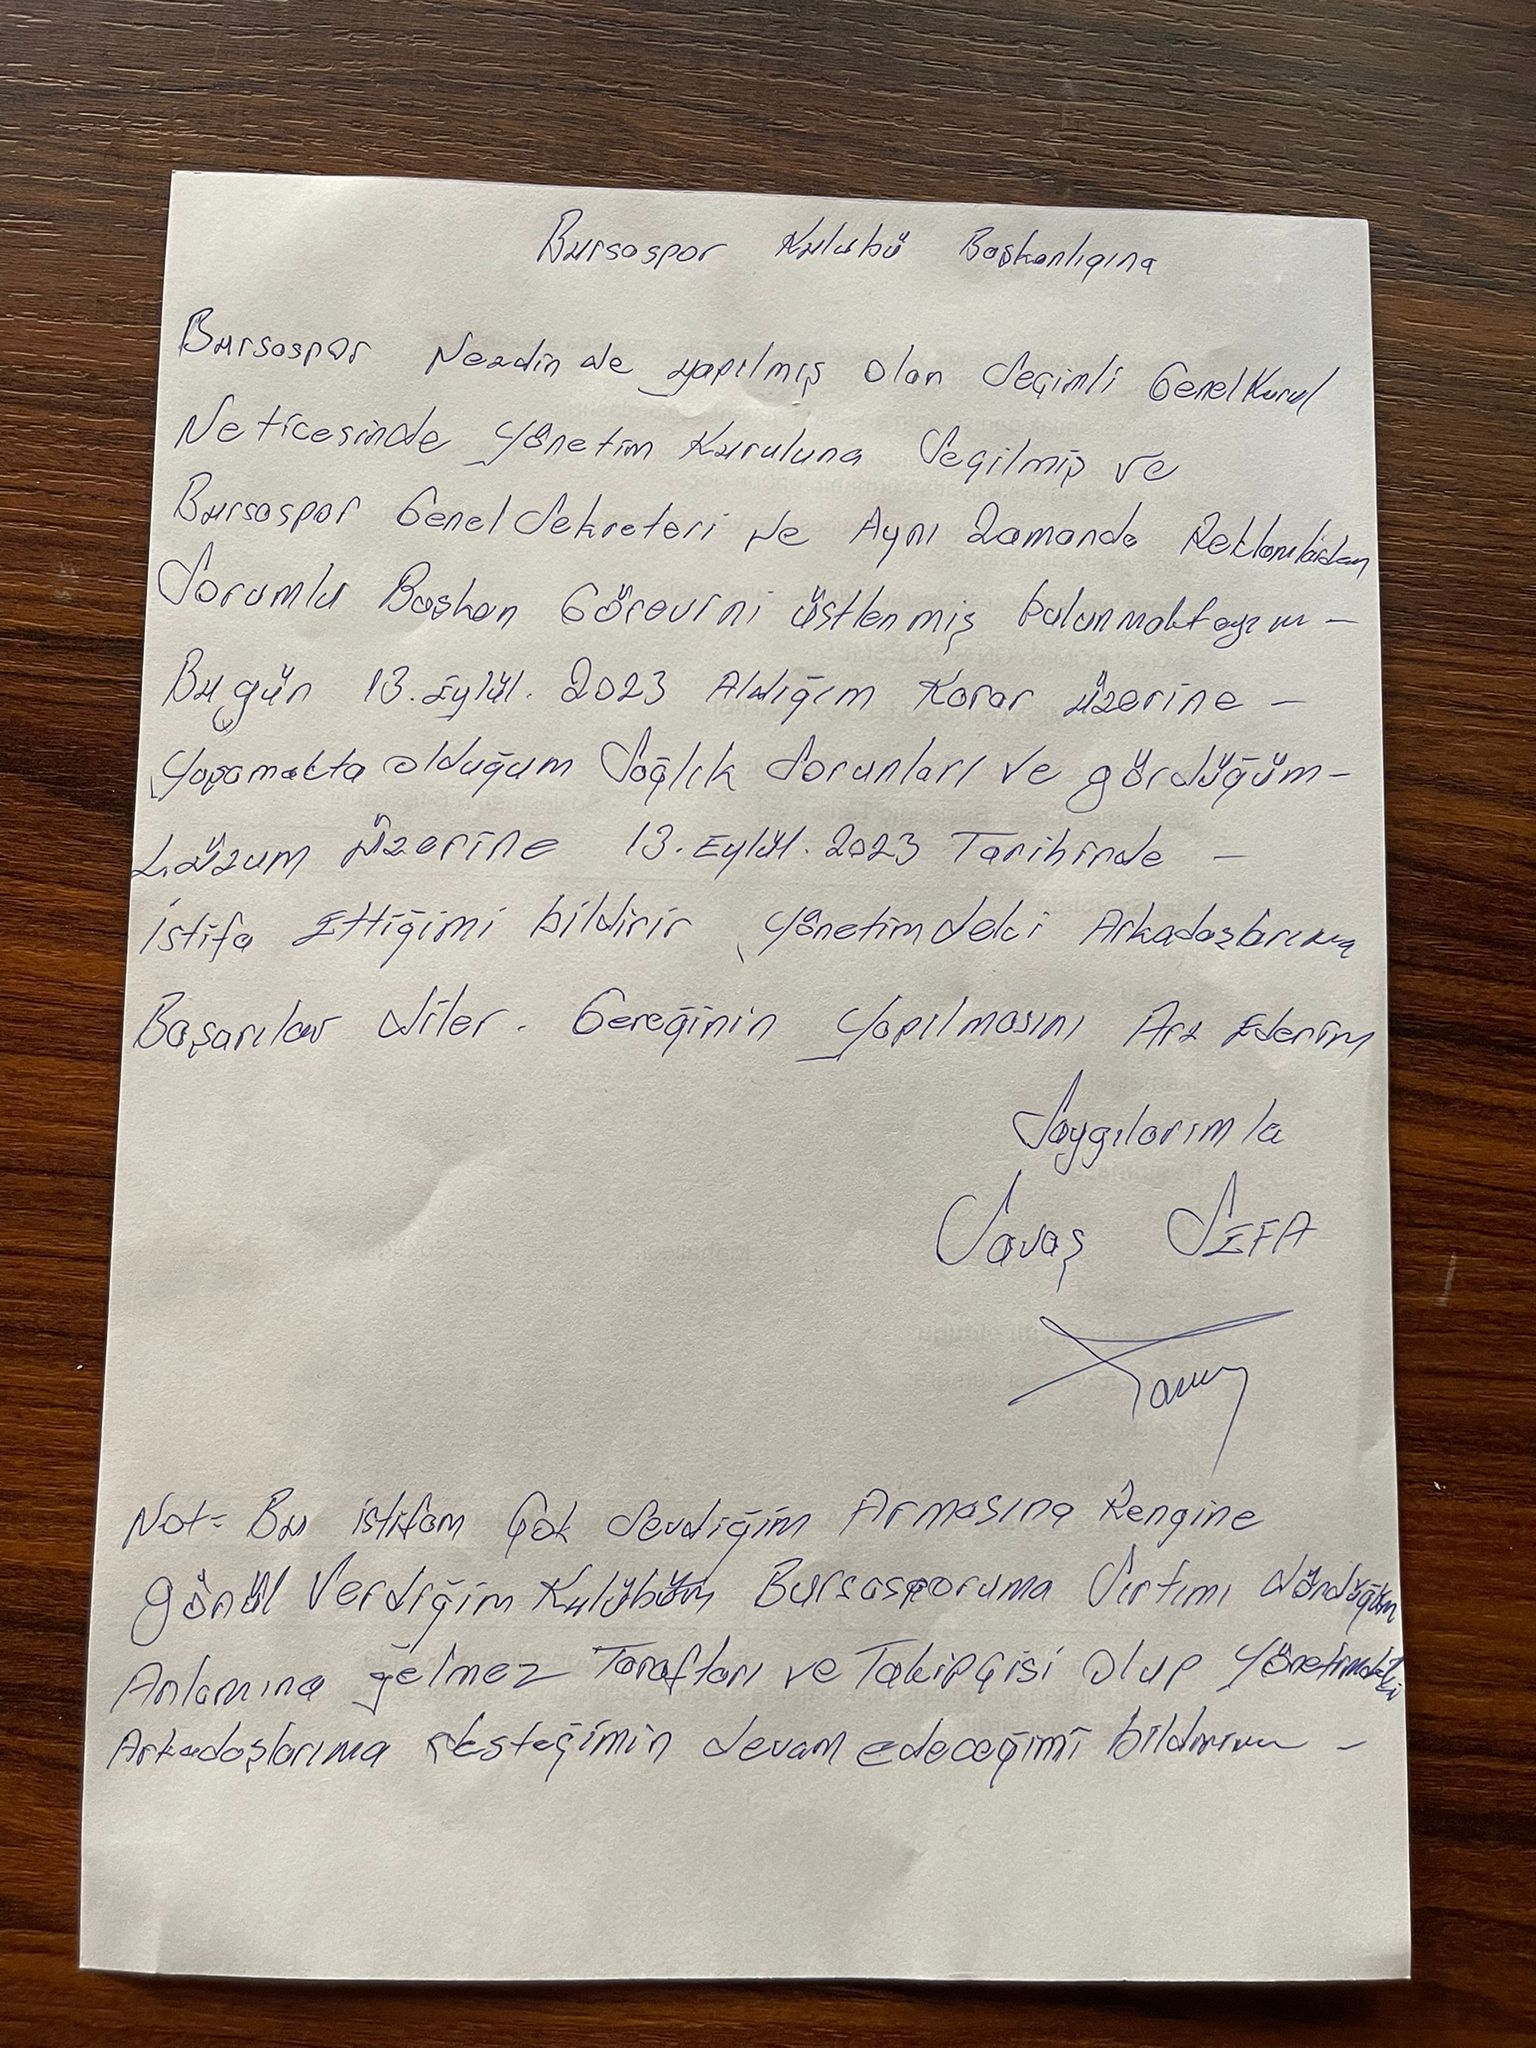 Bursaspor Kulubü Başkanlıgına
Bursaspor Nezdinde yapılmış olan Seçimli Genel Kurul
Neticesinde Yönetim Kuruluna Seçilmiş ve
Bursaspor Genel Sekreteri ve Aynı Zamanda Reklamlardan
Sorumlu Başkan Görevini üstlenmiş bulunmaktayım –
Bugün 13.Eylül.2023 Aldığım Karar üzerine –
Yaşamakta olduğum Sağlık Sorunları ve gördüğüm –
Lüzum üzerine 13.Eylül.2023 Tarihinde –
İstifa Ettiğimi bildirir Yönetimdeki Arkadaşlarıma
Başarılar diler. Gereğinin Yapılmasını Arz Ederim
Saygılarımla
Savaş SEFA
Not= Bu istifam Çok Sevdiğim Armasına Rengine
gönül Verdiğim Kulübüm Bursasporuma Sırtımı döndüğüm
Anlamına gelmez Taraftarı ve Takipçisi Olup Yönetimdeki
Arkadaşlarıma desteğimin devam edeceğimi bildiririm –